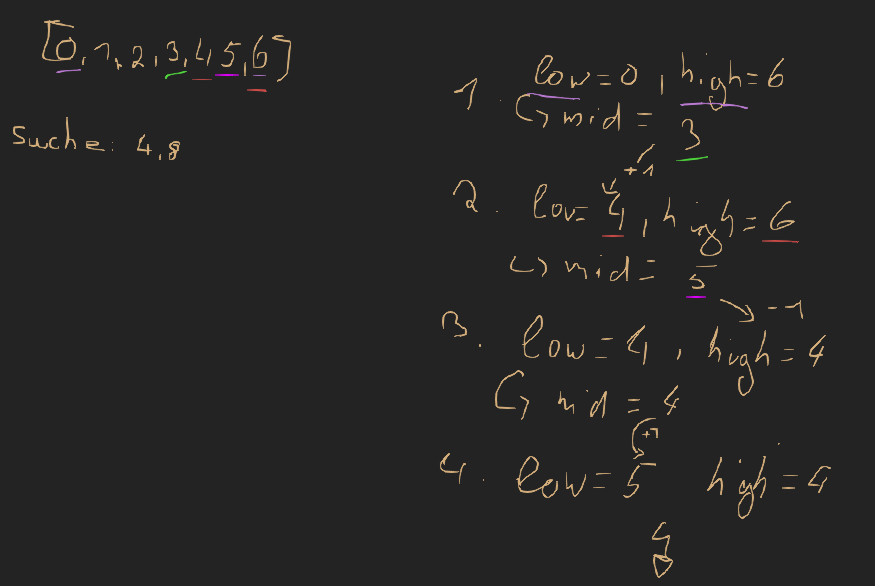 [0,1,2,3,4 5,6]
Suche: 4,8
1. low=0, high=6
↳ mid = 3
+1
2. low=4, high=6
↳ mid = 5
-1
3. low=4, high=4
↳ mid = 4
+1
4. low=5 high=4